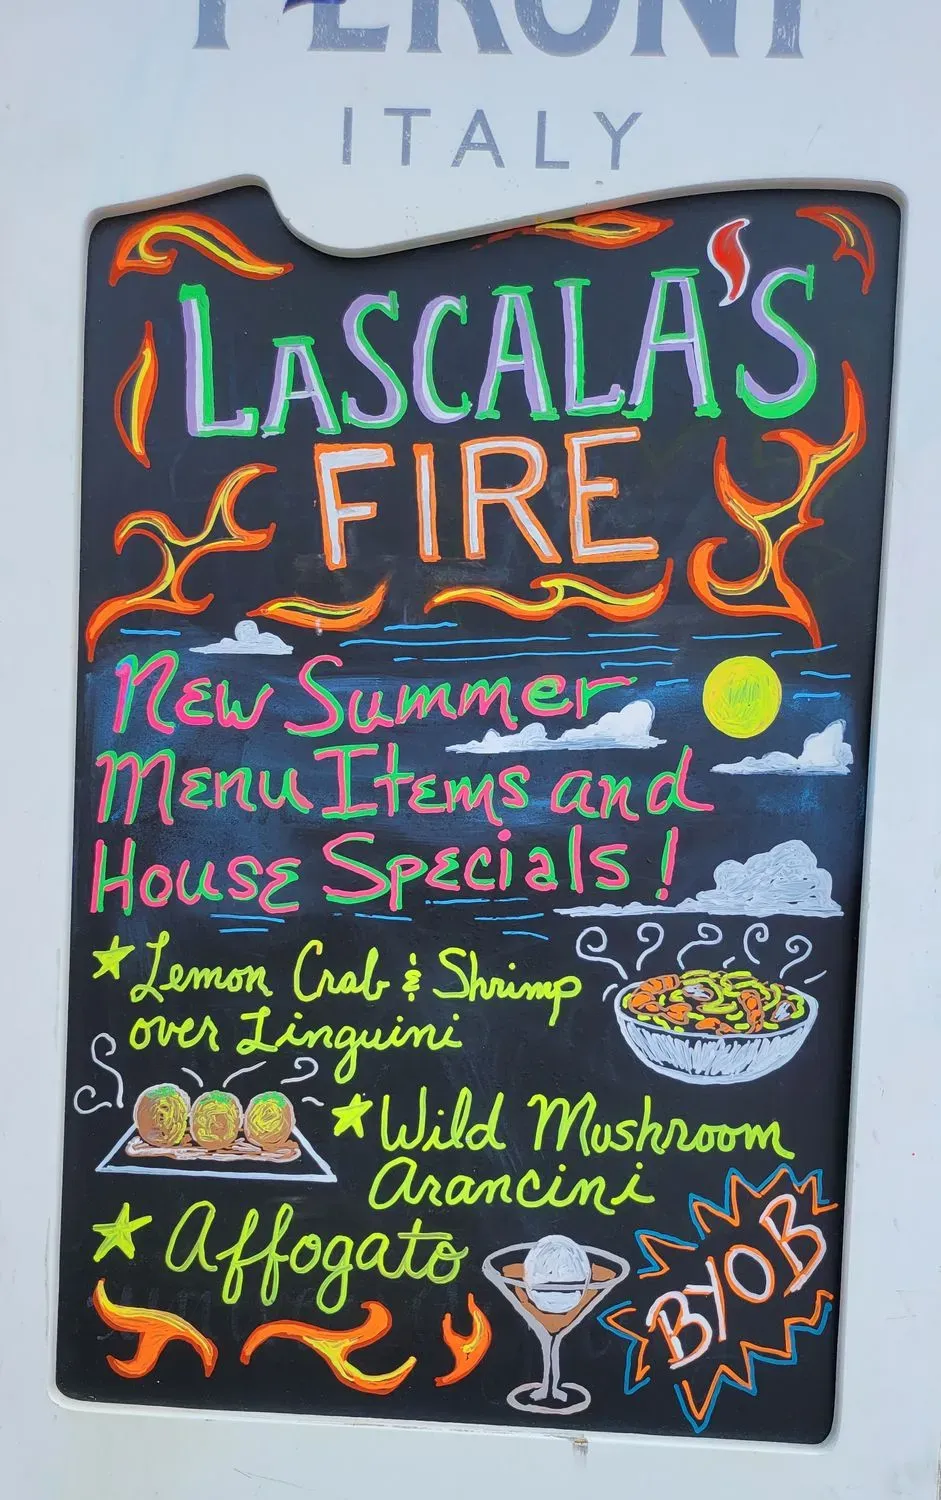 PERONI
ITALY
LASCALA'S
FIRE
New Summer
Menu Items and
House Specials!
Lemon Crab & Shrimp
over Linguini
Wild Mushroom
Arancini
Affogato
BYOB